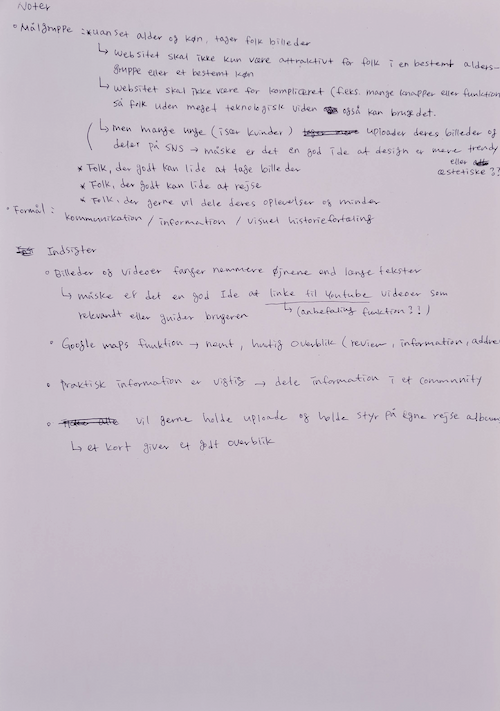 Noter
• Målgruppe : *uanset alder og køn, tager folk billeder
↳ websitet skal ikke kun være attraktivt for folk i en bestemt alders-
gruppe eller et bestemt køn
↳ websitet skal ikke være for kompliceret (f.eks. mange knapper eller funktion
så folk uden meget teknologisk viden også kan bruge det.
↳ men mange unge (især kvinder) uploader deres billeder og
deler på SNS → måske er det en god ide at design er mere trendy
eller
æstetiske ??
* Folk, der godt kan lide at tage billeder
* Folk, der godt kan lide at rejse
* Folk, der gerne vil dele deres oplevelser og minder
• Formål :
kommunikation / information / visuel historiefortæling
Indsigter
• Billeder og videoer fanger nemmere øjnene end lange tekster
↳ måske er det en god Ide at linke til Youtube videoer som
relevant eller guider brugeren
↳ (anbefaling funktion ?!)
• Google maps funktion → nemt, hurtig overblik (review, information, addre
• Praktisk information er vigtig → dele information i et community
• vil gerne holde uploade og holde styr på egne rejse album
↳ et kort giver et godt overblik